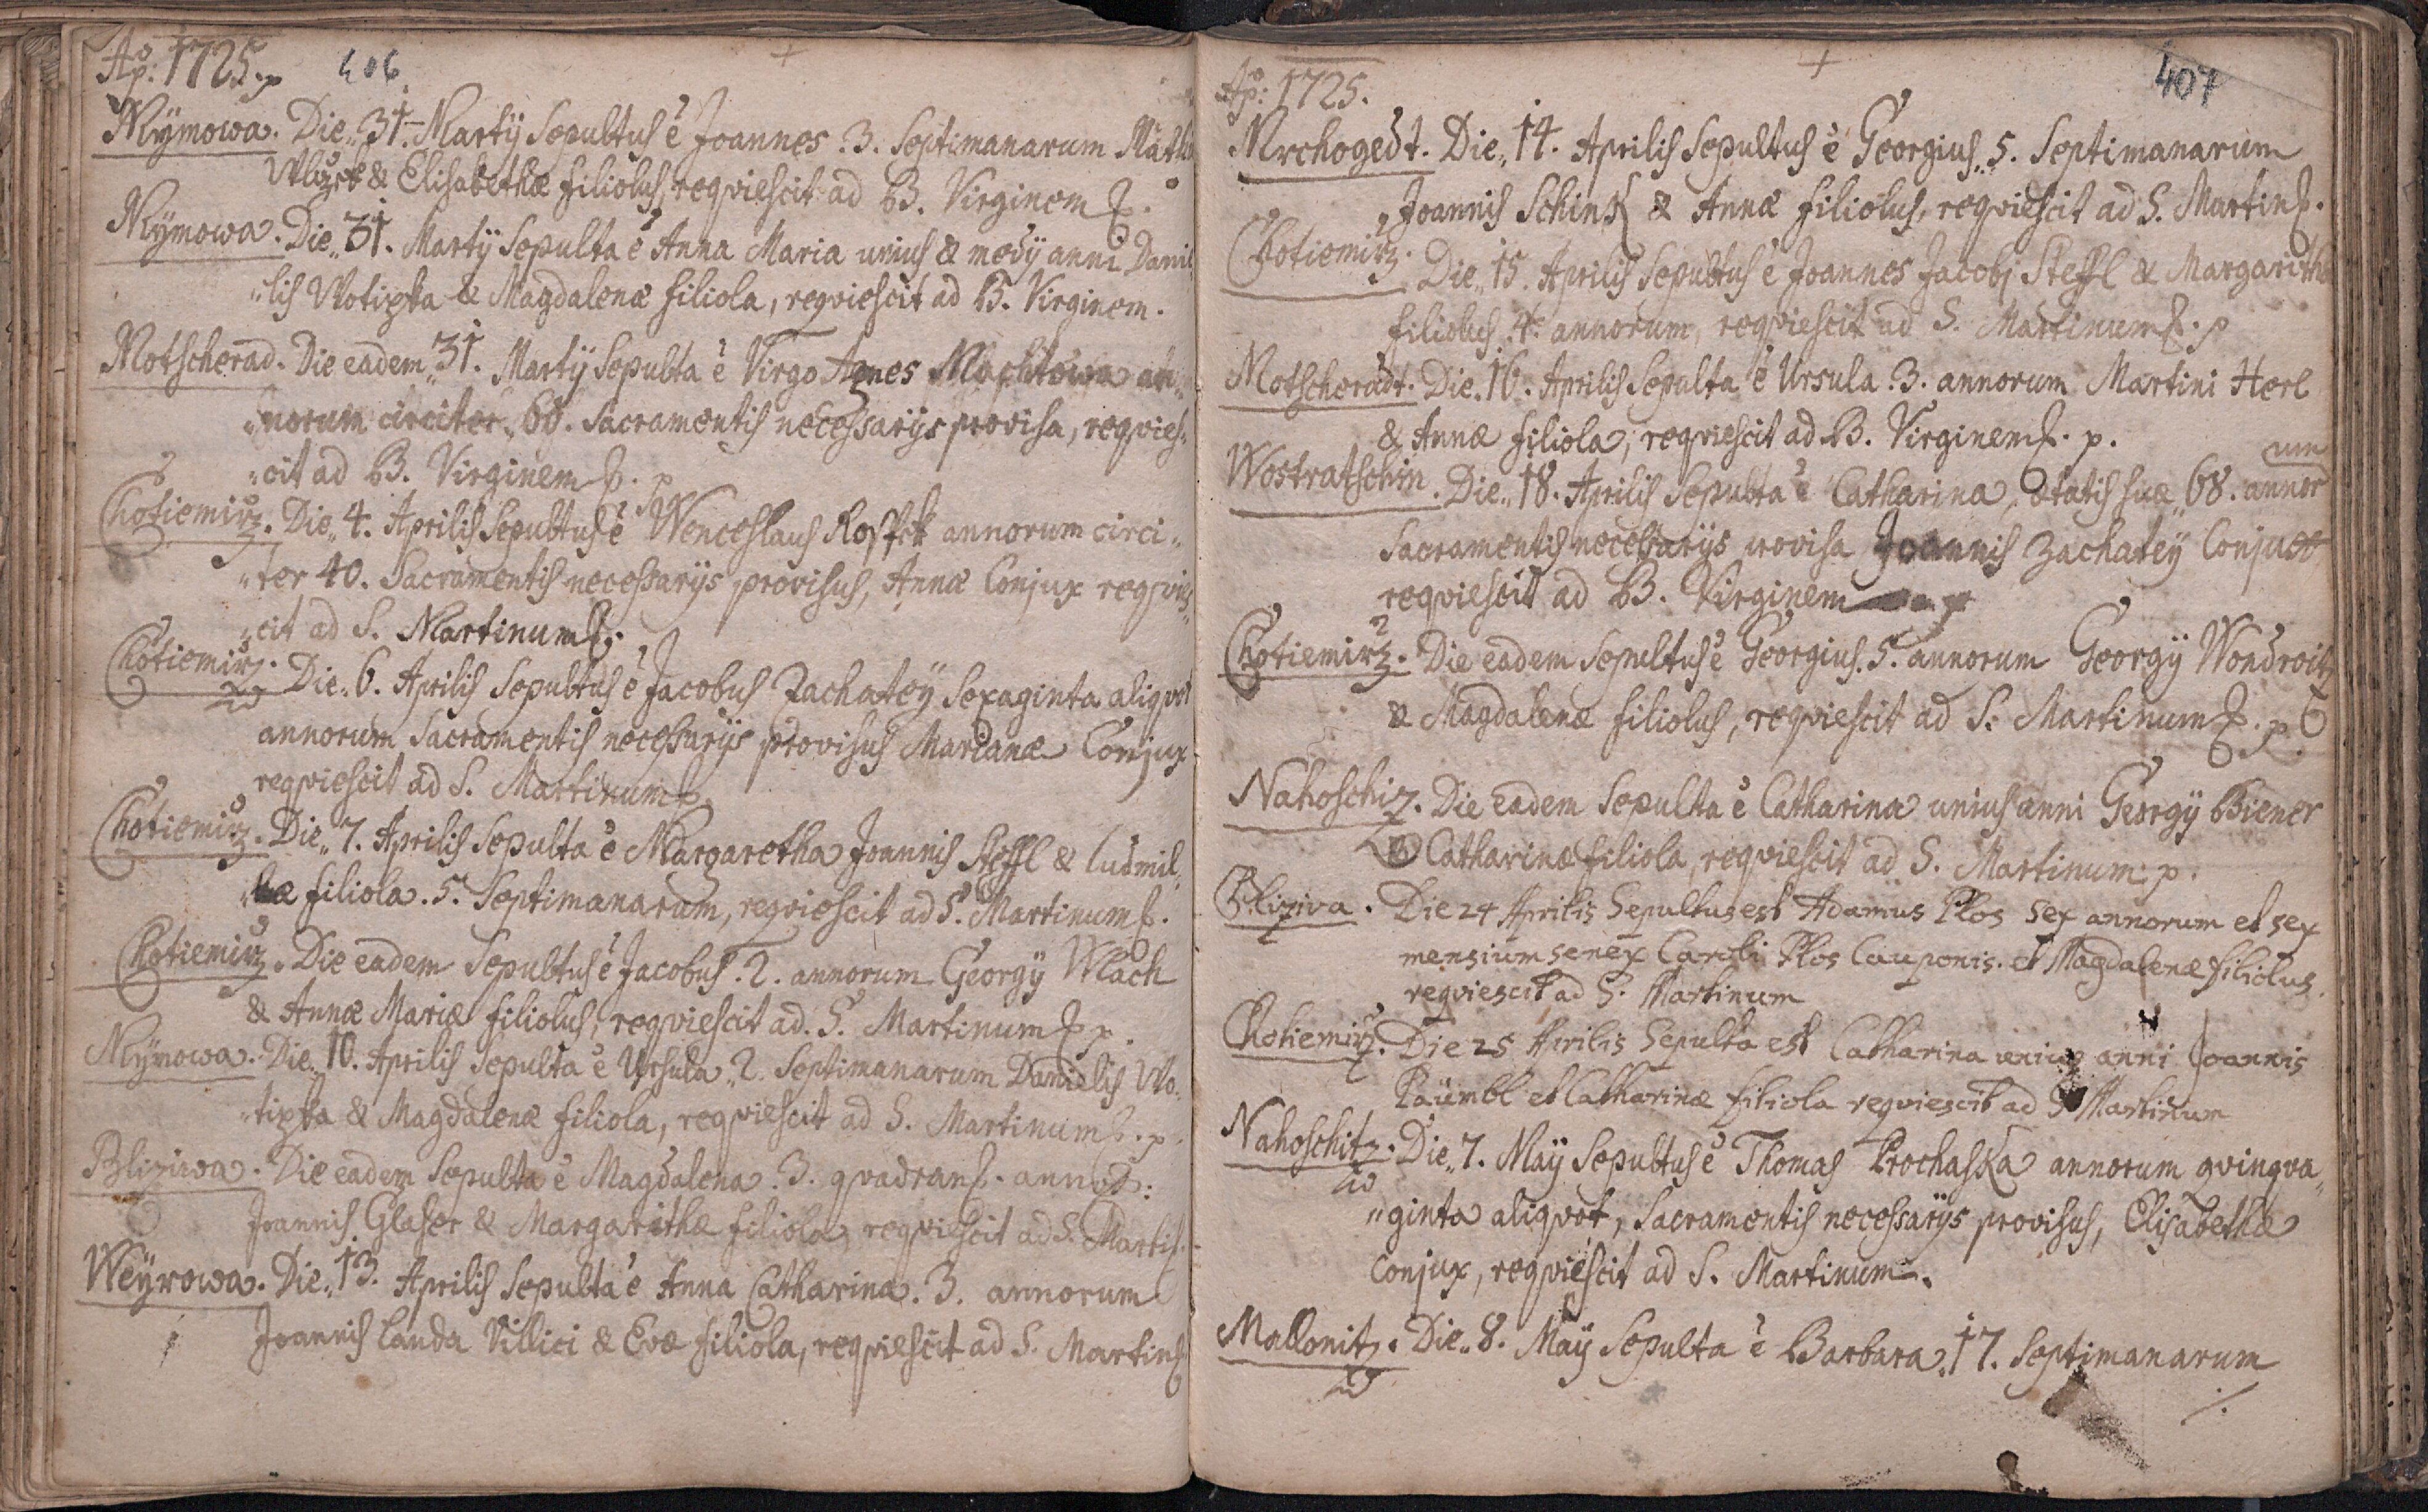 Ao: 1725. 406
Mÿmowa. Die 31. Martÿ Sepultus e Joannes 3. Septimanarum Mathi
& Elisabethæ filiolus, reqviescit ad B. Virginem
Mÿmowa. Die 31. Martÿ Sepulta e Anna Maria unius & medÿ anni Dani
„lis Wotipka & Magdalenæ filiola, reqviescit ad B. Virginem.
Motscherad. Die eadem 31. Martÿ Sepulta e Virgo Agnes an„
„norum circiter 60. Sacramentis necessarÿs provisa, reqvies„
„cit ad B. Virginem
Chotiemirz. Die 4. Aprilis Sepultus e Wenceslaus annorum circi„
„ter 40. Sacramentis necessarÿs provisus, Annæ Conjux reqvies„
„cit ad S. Martinum
Chotiemirz. Die 6. Aprilis Sepultus e Jacobus Zachateÿ Sexaginta aliqvot
annorum Sacramentis necessarÿs provisus Marianæ Conjux
reqviescit ad S. Martinum
Chotiemirz. Die 7. Aprilis Sepulta e Margaretha Joannis Steffl & Ludmil„
„læ filiola. 5. Septimanarum, reqviescit ad S. Martinum
Chotiemirz. Die eadem Sepultus e Jacobus. 2. annorum Georgÿ Wlach
& Annæ Mariæ filiolus, reqviescit ad. S. Martinum p.
Mÿmowa. Die 10. Aprilis Sepulta e Ursula 2. Septimanarum Danielis Wo„
„tipka & Magdalenæ filiola, reqviescit ad S. Martinum p.
Bliziwa. Die eadem Sepulta e Magdalena. 3. qvadran.
Joannis Glaser & Margarithæ filiola, reqviescit ad S. Martin
Weÿrowa. Die 13. Aprilis Sepulta e Anna Catharina. 3. annorum
Joannis Landa Villici & Evæ filiola, reqviescit ad S. Martin
Ao: 1725. 407
Mrchogedt. Die 14. Aprilis Sepultus e Georgius 5. Septimanarum
Joannis Schink & Annæ filiolus, reqviescit ad S. Martin
Chotiemirz. Die 15. Aprilis Sepultus e Joannes Jacobj Steffl & Margarithæ
filiolus 4. annorum, reqviescit ad S. Martinum p
Motscheradt. Die 16. Aprilis Sepulta e Ursula. 3. annorum Martini Herl
& Annæ filiola, reqviescit ad B. Virginem p.
um
Wostratschin. Die 18. Aprilis Sepulta e Catharina, ætatis suæ 68. annor
Sacramentis necessarÿs provisa Joannis Zachateÿ Conjux
reqviescit ad B. Virginem
Chotiemirz. Die eadem Sepultus e Georgius. 5. annorum Georgÿ Wondroitz
& Magdalenæ filiolus, reqviescit ad S. Martinum p
Nahoschiz. Die eadem Sepulta e Catharina unius anni Georgÿ Biener
& Catharinæ filiola, reqviescit ad S. Martinum p.
Bliziva. Die 24 Aprilis Sepultus est Adamus Plos sex annorum et sex
mensium senex Caroli Plos Cauponis. et Magdalenæ filiolus.
reqviescit ad S. Martinum
Chotiemirz. Die 25 Aprilis Sepulta est Catharina unius anni Joannis
Paümbl et Catharinæ filiola reqviescit ad S Martinum
Nahoschitz. Die 7. Maÿ Sepultus e Thomas Prochaska annorum qvinqva„
„ginta aliqvot, Sacramentis necessarÿs provisus, Elisabethæ
Conjux, reqviescit ad S. Martinum.
Mallonitz. Die 8. Maÿ Sepulta e Barbara 17. Septimanarum